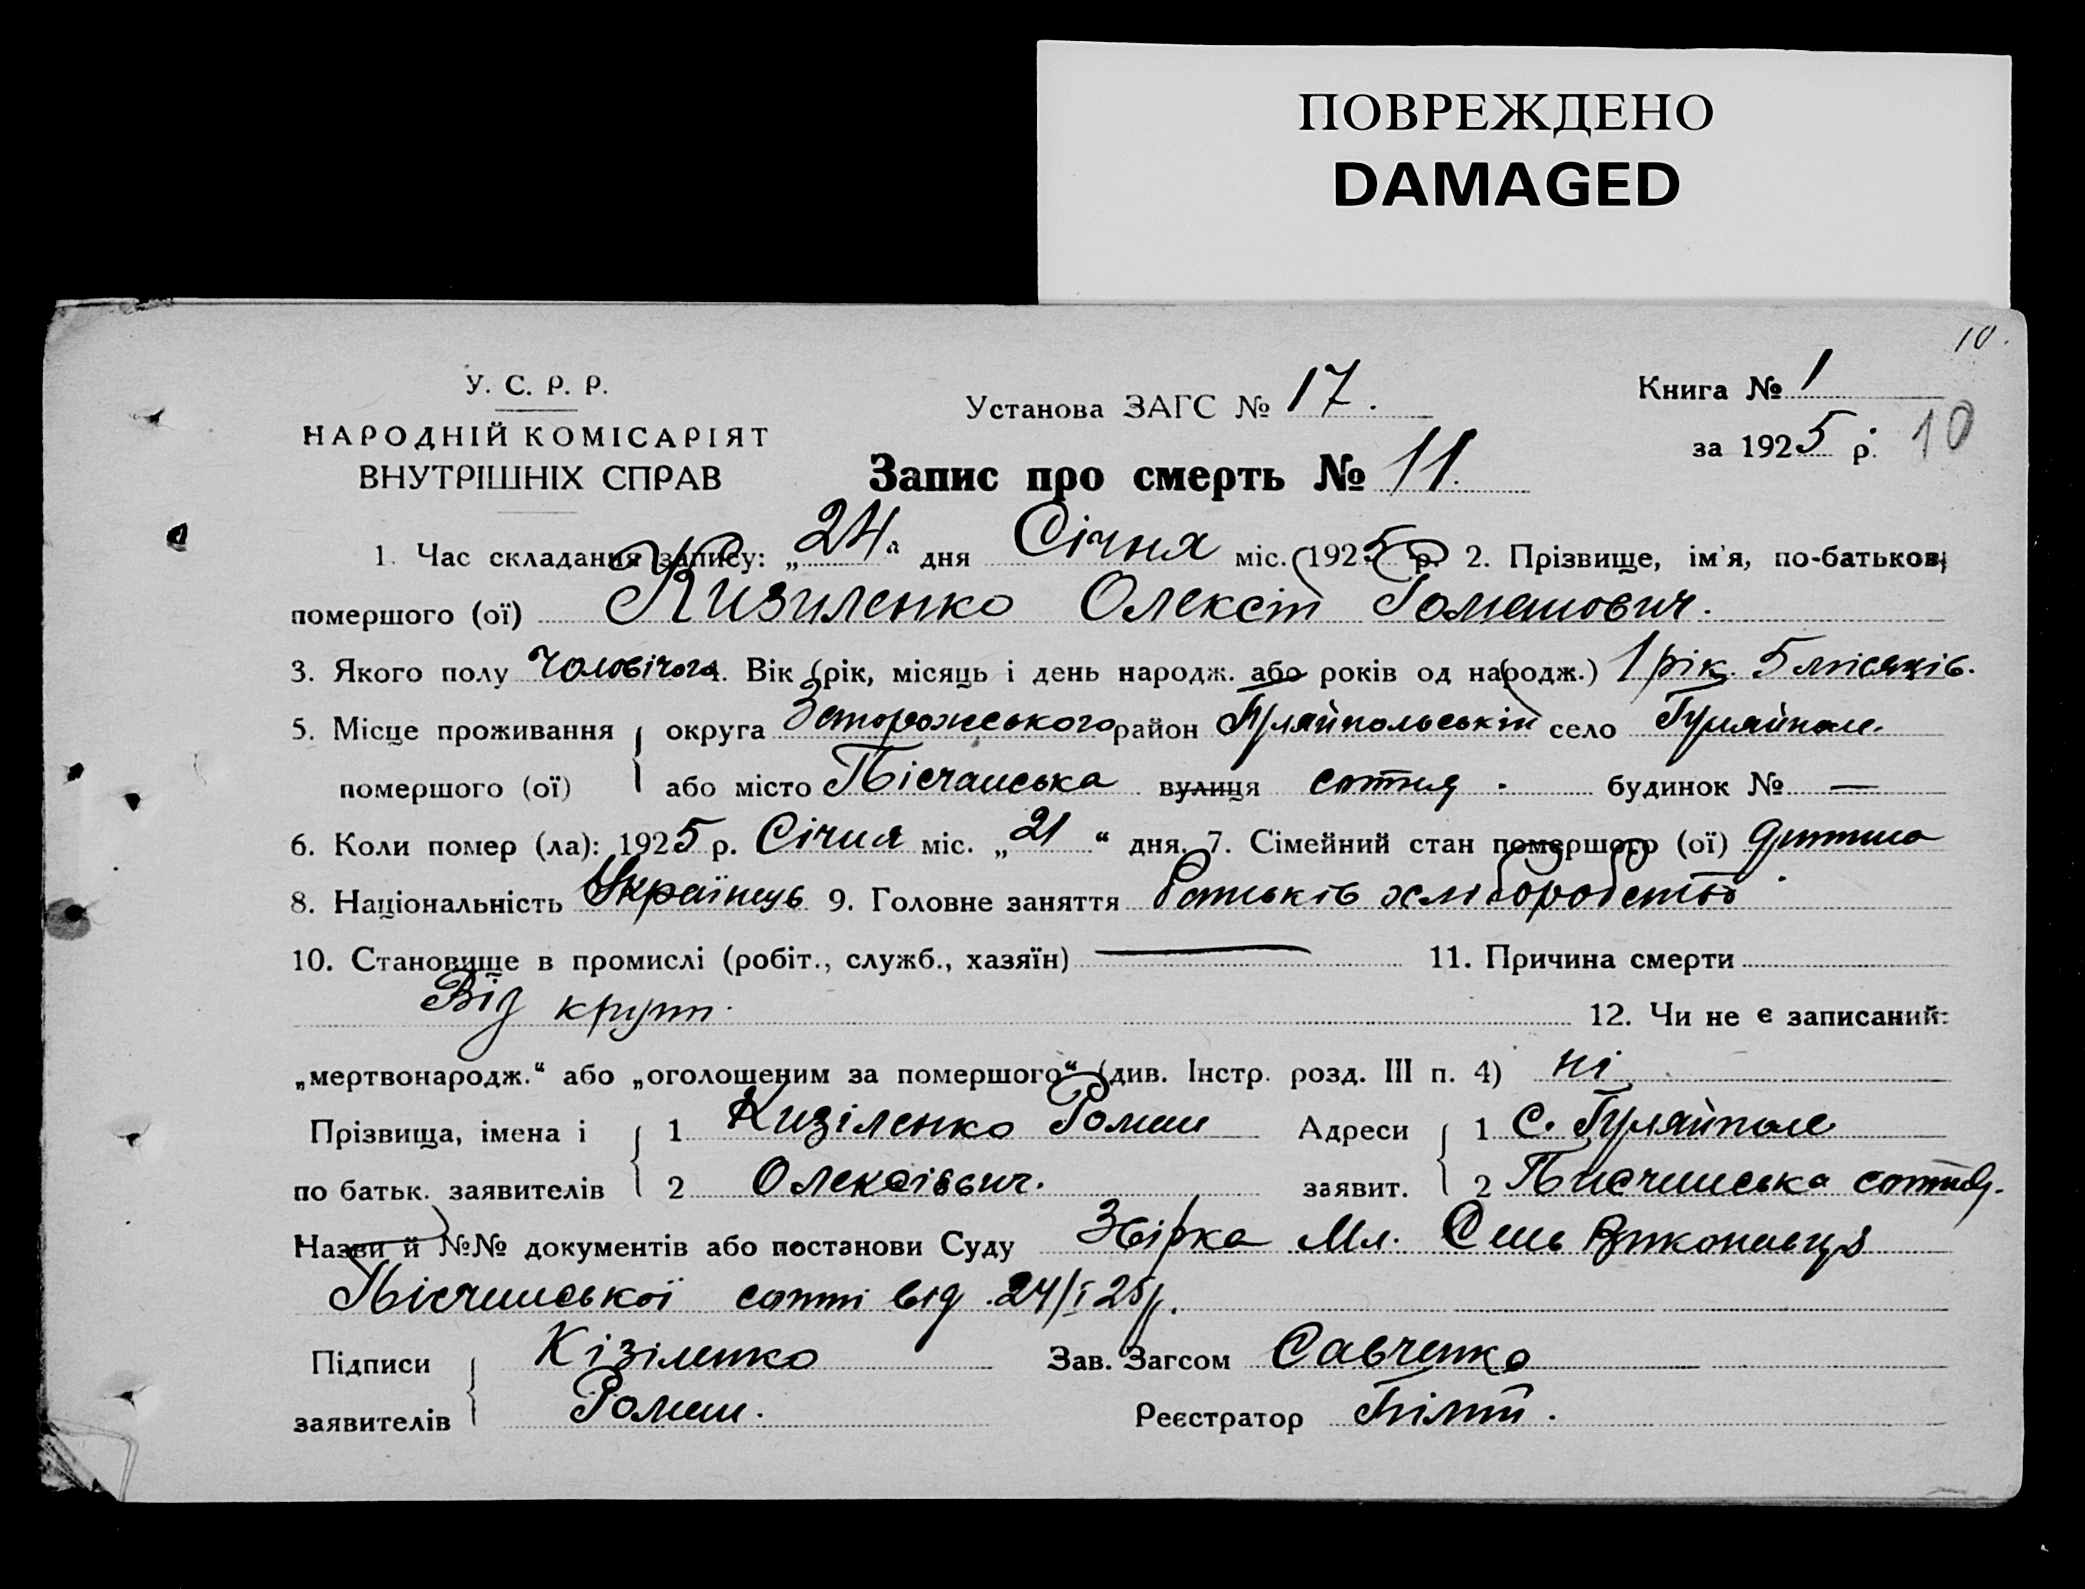 ПОВРЕЖДЕНО
DAMAGED
10.
У. С. Р. Р.
НАРОДНІЙ КОМІСАРІЯТ
ВНУТРІШНІХ СПРАВ
Установа ЗАГС № 17.
Запис про смерть № 11.
Книга № 1
за 1925 р. 10
1. Час складання запису: „24“ дня Січня міс. 1925 р. 2. Прізвище, ім'я, по-батькові
помершого (ої) Кизиленко Олексій Романович.
3. Якого полу Чоловічого 4. Вік (рік, місяць і день народж. або років од народж.) 1 рік. 5 місяців.
5. Місце проживання округа Запорожського район Гуляйпольській село Гуляйполе.
помершого (ої) або місто Пісчанська вулиця сотня. будинок № —
6. Коли помер (ла): 1925 р. Січня міс. „21“ дня. 7. Сімейний стан помершого (ої) дитина
8. Національність Українець 9. Головне заняття Батьків хліборобство.
10. Становище в промислі (робіт., служб., хазяїн) — 11. Причина смерти
Від круп. 12. Чи не є записаний:
„мертвонародж.“ або „оголошеним за помершого“ (див. Інстр. розд. III п. 4) ні
Прізвища, імена і 1 Кизіленко Роман Адреси 1 с. Гуляйполе
по батьк. заявителів 2 Олексієвич. заявит. 2 Писчанська сотня.
Назви й №№ документів або постанови Суду Мл. Сель Виконавця
Пісчанської сотні від 24/I 25р.
Підписи Кізіленко Зав. Загсом Савченко
заявителів Роман. Реєстратор